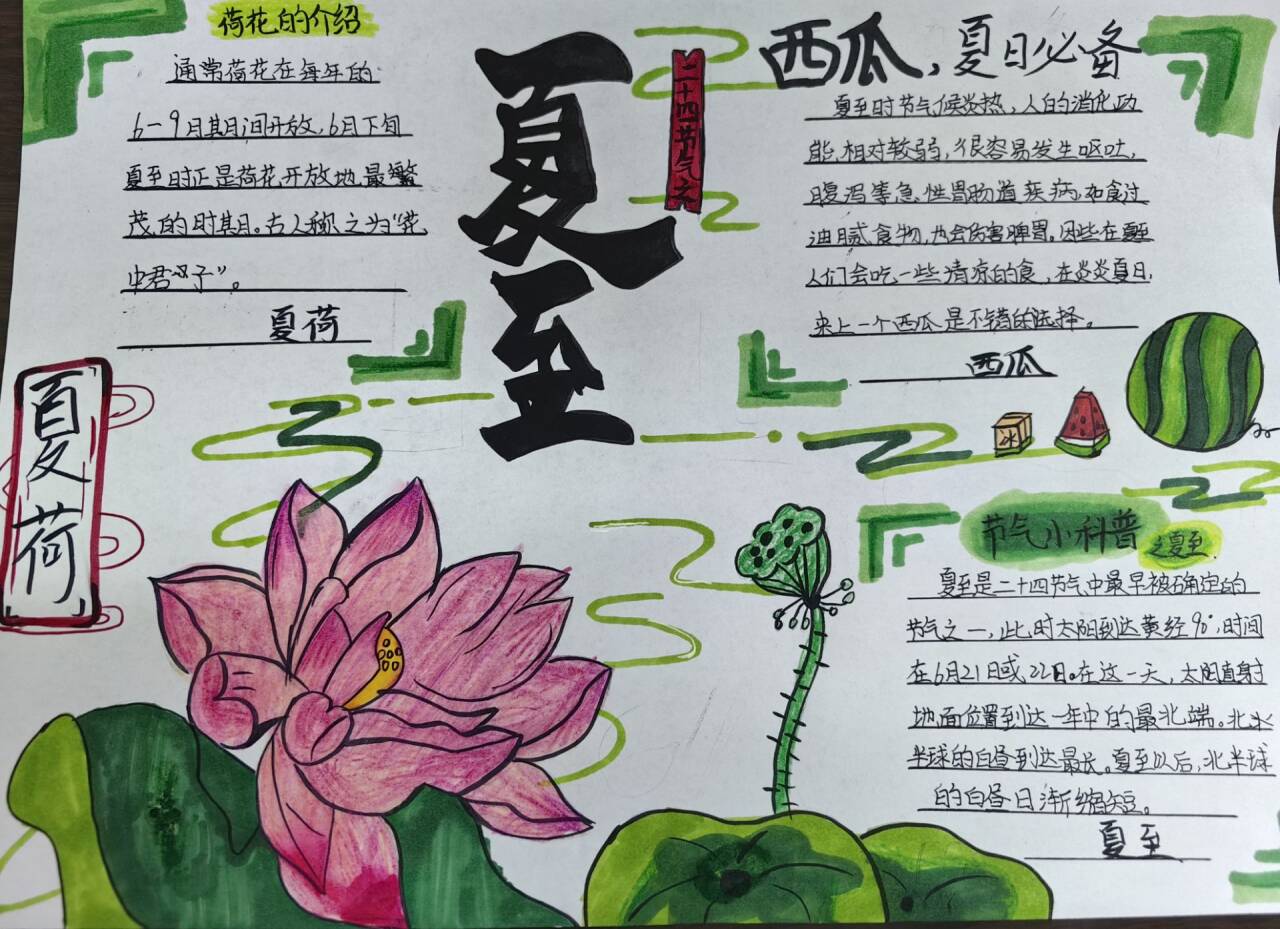 荷花的介绍
通常荷花在每年的
6-9月期间开放,6月下旬
夏至时正是荷花开放地最繁
茂的时期。古人称之为“花
中君子”。
夏荷
夏至
二十四节气之
西瓜,夏日必备
夏至时节气候炎热,人的消化功
能相对较弱,很容易发生呕吐,
腹泻等急性胃肠道疾病,和食过
油腻食物,也会伤害脾胃。因些在夏至
人们会吃一些清凉的食,在炎炎夏日,
来上一个西瓜是不错的选择。
西瓜
冰
夏荷
节气小科普
之夏至
夏至是二十四节气中最早被确定的
节气之一,此时太阳到达黄经90°,时间
在6月21日或22日。在这一天,太阳直射
地面位置到达一年中的最北端。北
半球的白昼到达最长。夏至以后,北半球
的白昼日渐缩短。
夏至